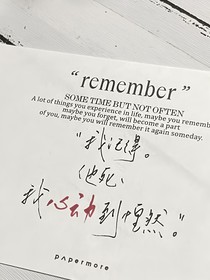 “ remember ”
SOME TIME BUT NOT OFTEN
A lot of things you experience in life, maybe you remember
maybe you forget, will become a part
of you, maybe you will remember it again someday.
“我记得。
我心动到惶然。”
papermore